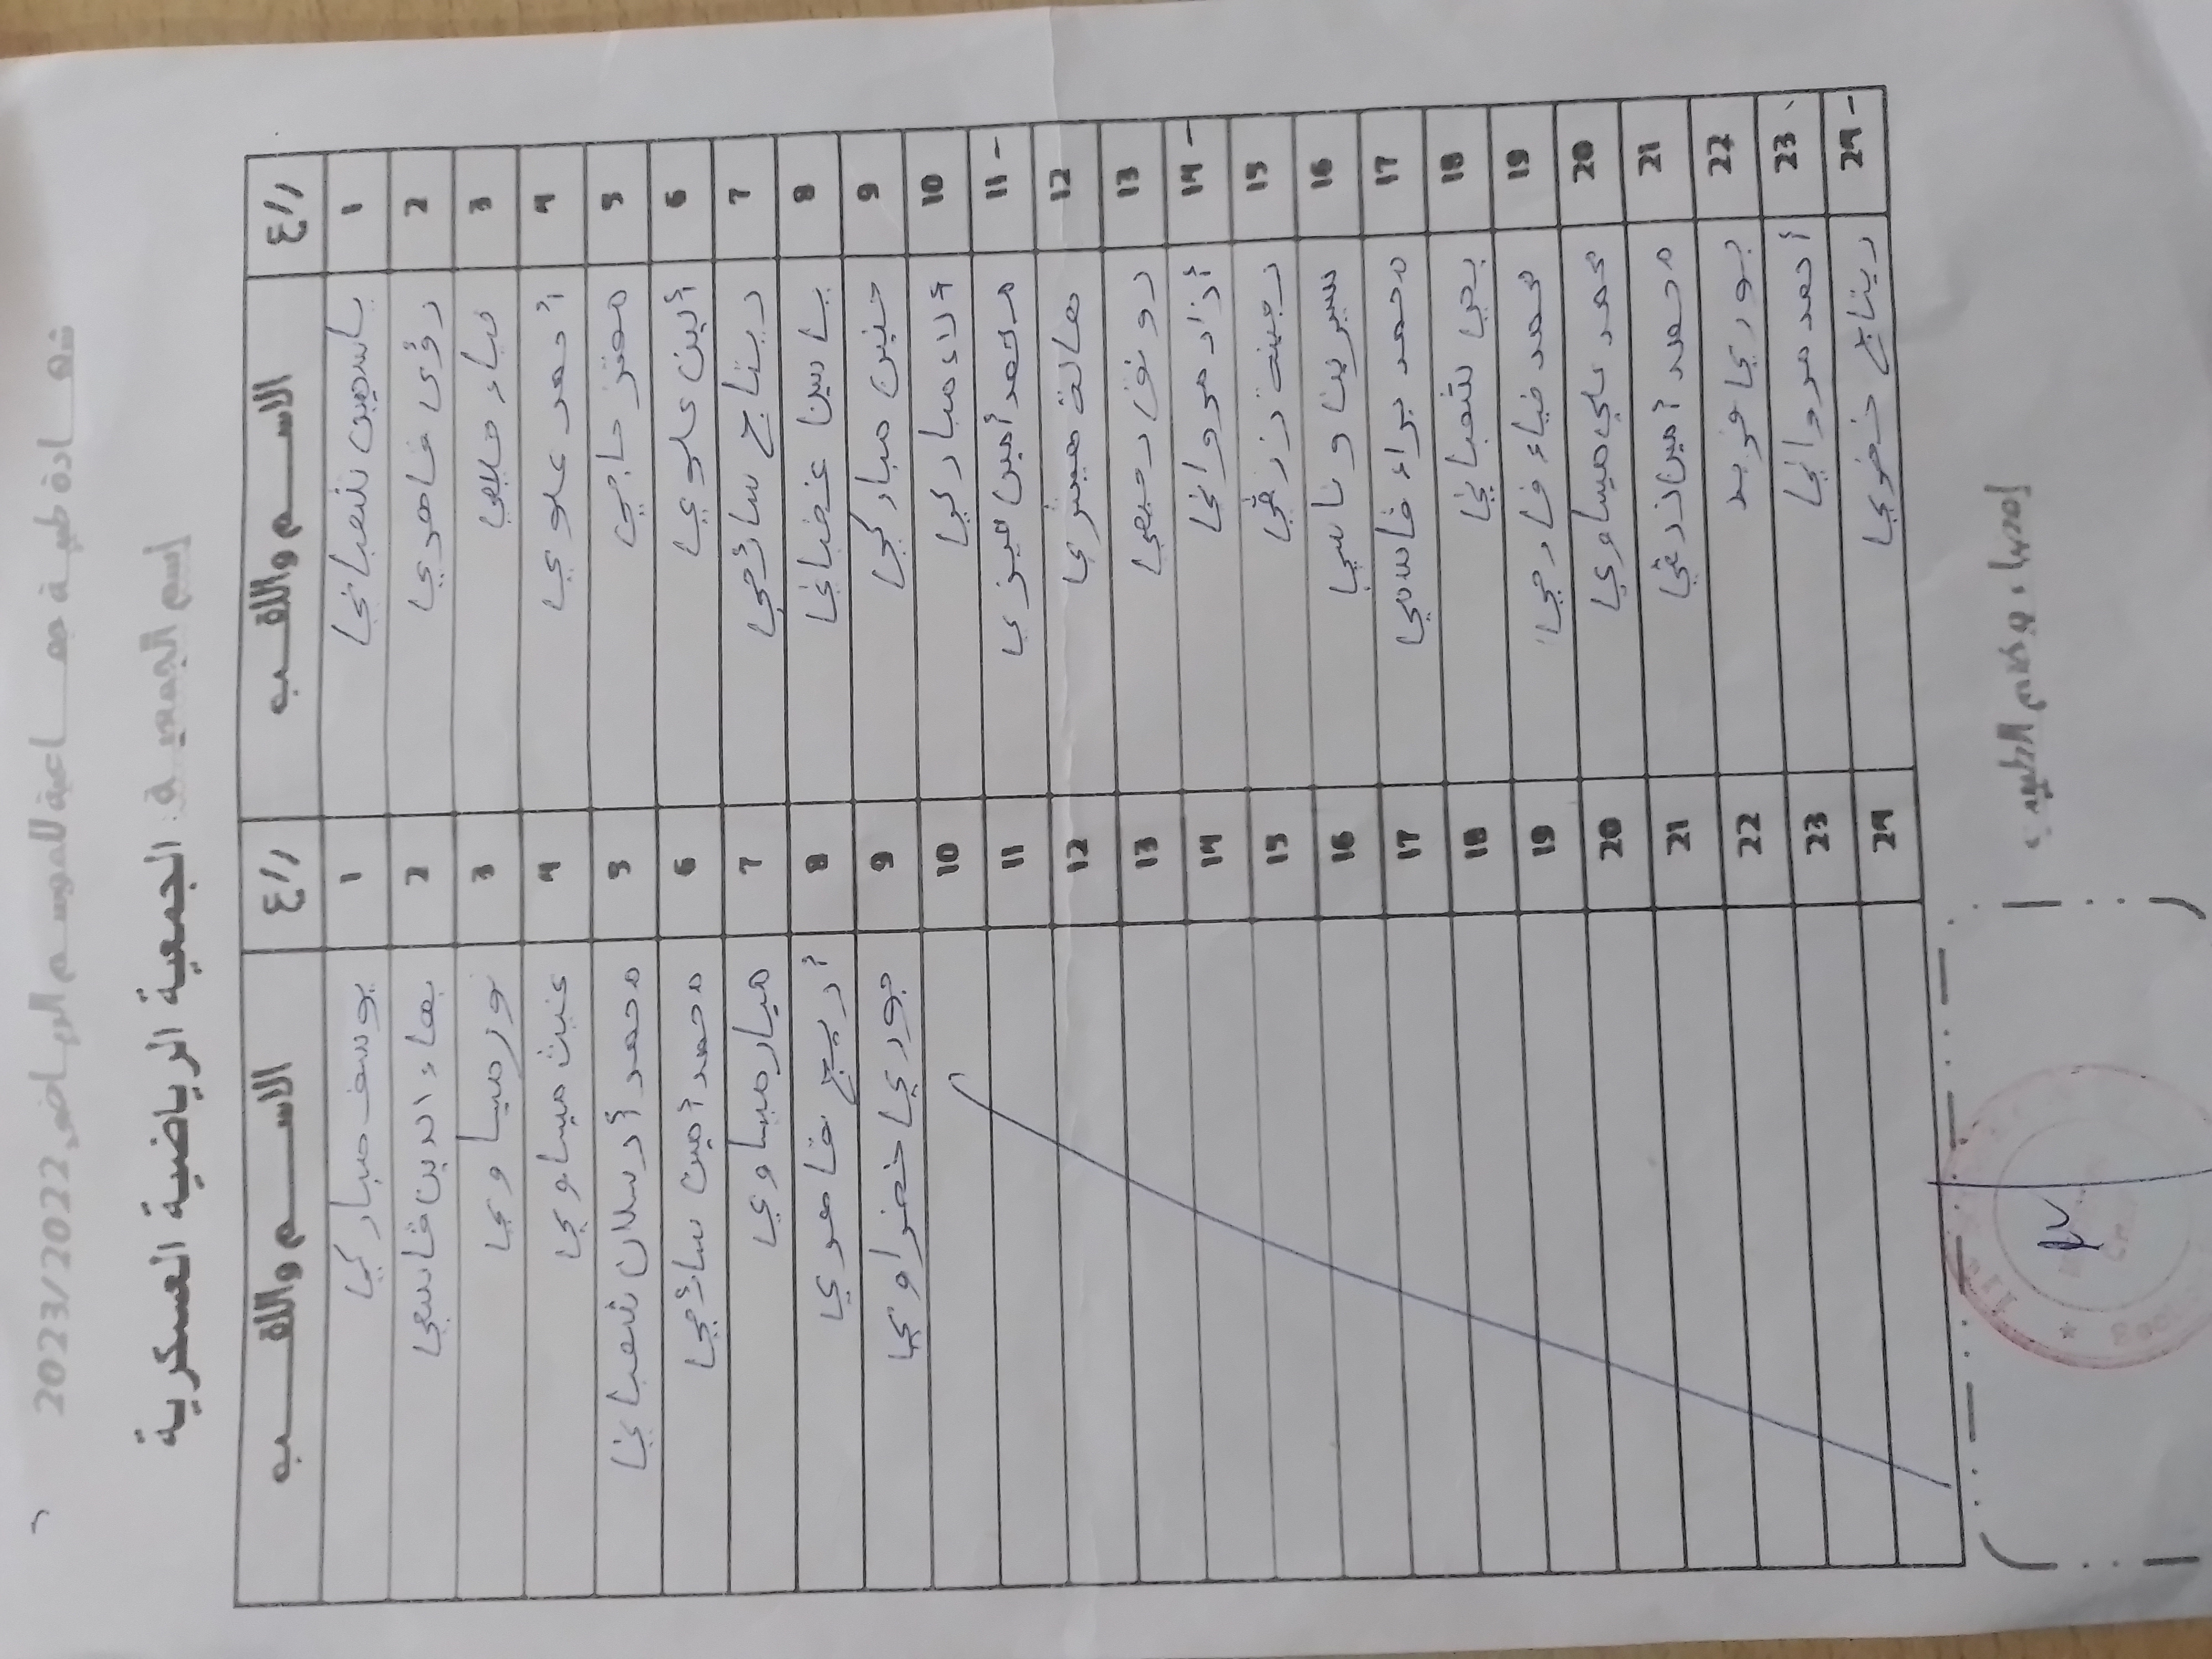 شهادة طبية جماعية للموسم الرياضي 2023/2022
إسم الجمعية: الجمعية الرياضية العسكرية
ع/ر الاسم واللقب ع/ر الاسم واللقب
1 ياسمين شعباني 1 يوسف مباركي
2 رؤى قاهري 2 بهاء الدين قاسمي
3 3 نور ميساوي
4 أحمد علوي 4 غيث ميساوي
5 معتز حاجي 5 محمد أرسلان شعباني
6 ألين علوي 6 محمد أمين سائحي
7 ريتاج سائحي 7 ميار ميساوي
8 ياسين غضباني 8 أريج
9 حنين مباركي 9 جوري خضراوي
10 ألاء مباركي 10
11 - محمد أمين 11
12 هالة 12
13 رونق رحيمي 13
14 - أزاد مرواني 14
15 زرقي 15
16 سيرين وناسي 16
17 محمد براء قاسمي 17
18 يحي شعباني 18
19 محمد ضياء فارحي 19
20 محمد علي ميساوي 20
21 محمد أمين زرقي 21
22 جوري فريد 22
23 أحمد مرواني 23
24 - ريتاج خضري 24
إمضاء وختم الطبيب